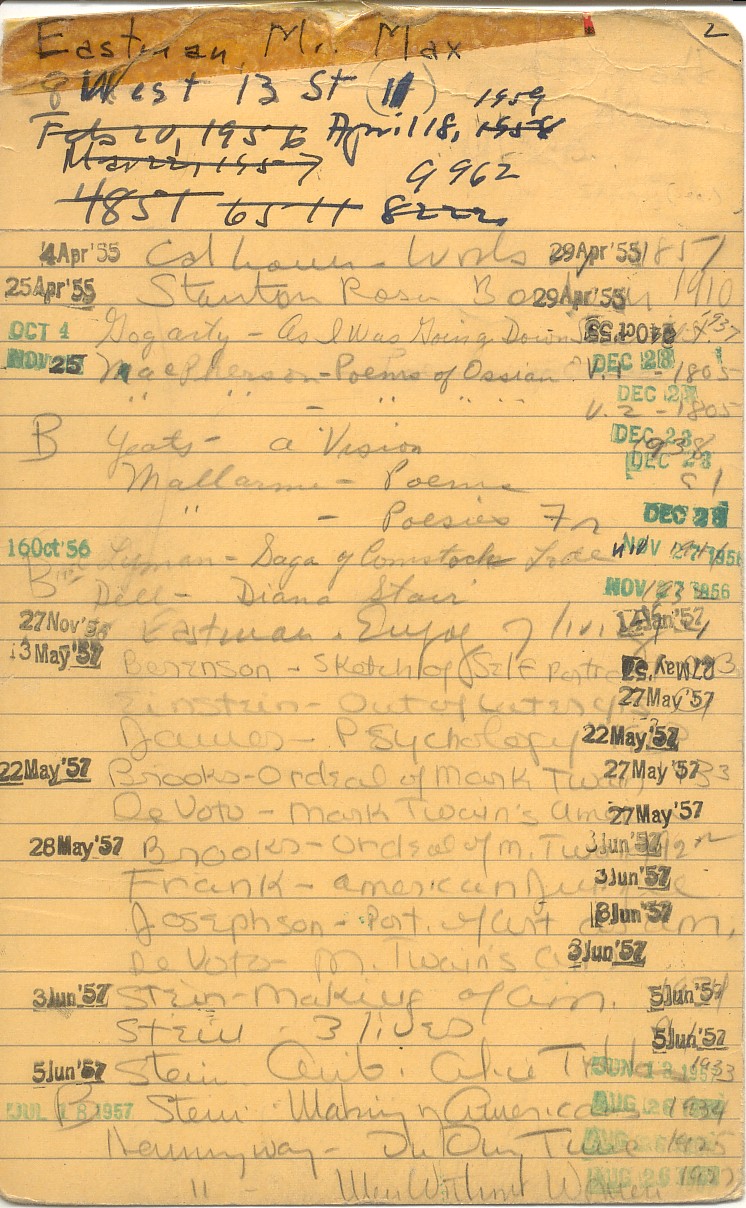 2
Eastman, Mr. Max
8 West 13 St 11 1959
Feb 10, 1956 April 18, 1958
Mar 22, 1957 G 962
4851 6511 8222
4Apr'55 Calhoun - Works 29Apr'55 1857
25Apr'55 Stanton Rosa 29Apr'55 1910
OCT 4 Gogarty - As I Was Going Down 24Oct'55 N.Y. 1937
NOV 25 MacPherson - Poems of Ossian V.1 - 1805 DEC 28
" " - " " " V. 2 - 1805 DEC 28
B Yeats - a Vision 1938 DEC 23
Mallarme - Poems DEC 28
" - Poesies DEC 28
16Oct'56 Lyman - Saga of Comstock Lode NOV 27 1956
B Dell - Diana Stair NOV 27 1956
27Nov'56 Eastman - Enjoy of living 14Jan'57
13May'57 Berenson - Sketch of Self Portrait 27May'57
Einstein - Out of Later Yrs 27May'57
James - Psychology 22May'57
22May'57 Brooks - Ordeal of Mark Twain 27May'57 33
DeVoto - Mark Twain's Am 27May'57
28May'57 Brooks - Ordeal of M. Twain 3Jun'57
Frank - American 3Jun'57
Josephson - Port. of art as Am. 3Jun'57
De Voto - M. Twain's 3Jun'57
3Jun'57 Stein - Making of Am. 5Jun'57
Stein - 3 lives 5Jun'57
5Jun'57 Stein Autb. Alice Toklas 1933 JUN 18 1957
JUL 18 1957 B Stein - Making of Americans 1934 AUG 26
Hemingway - In Our Time 1925 AUG 26
" - Men Without Women 1927 AUG 26 1957